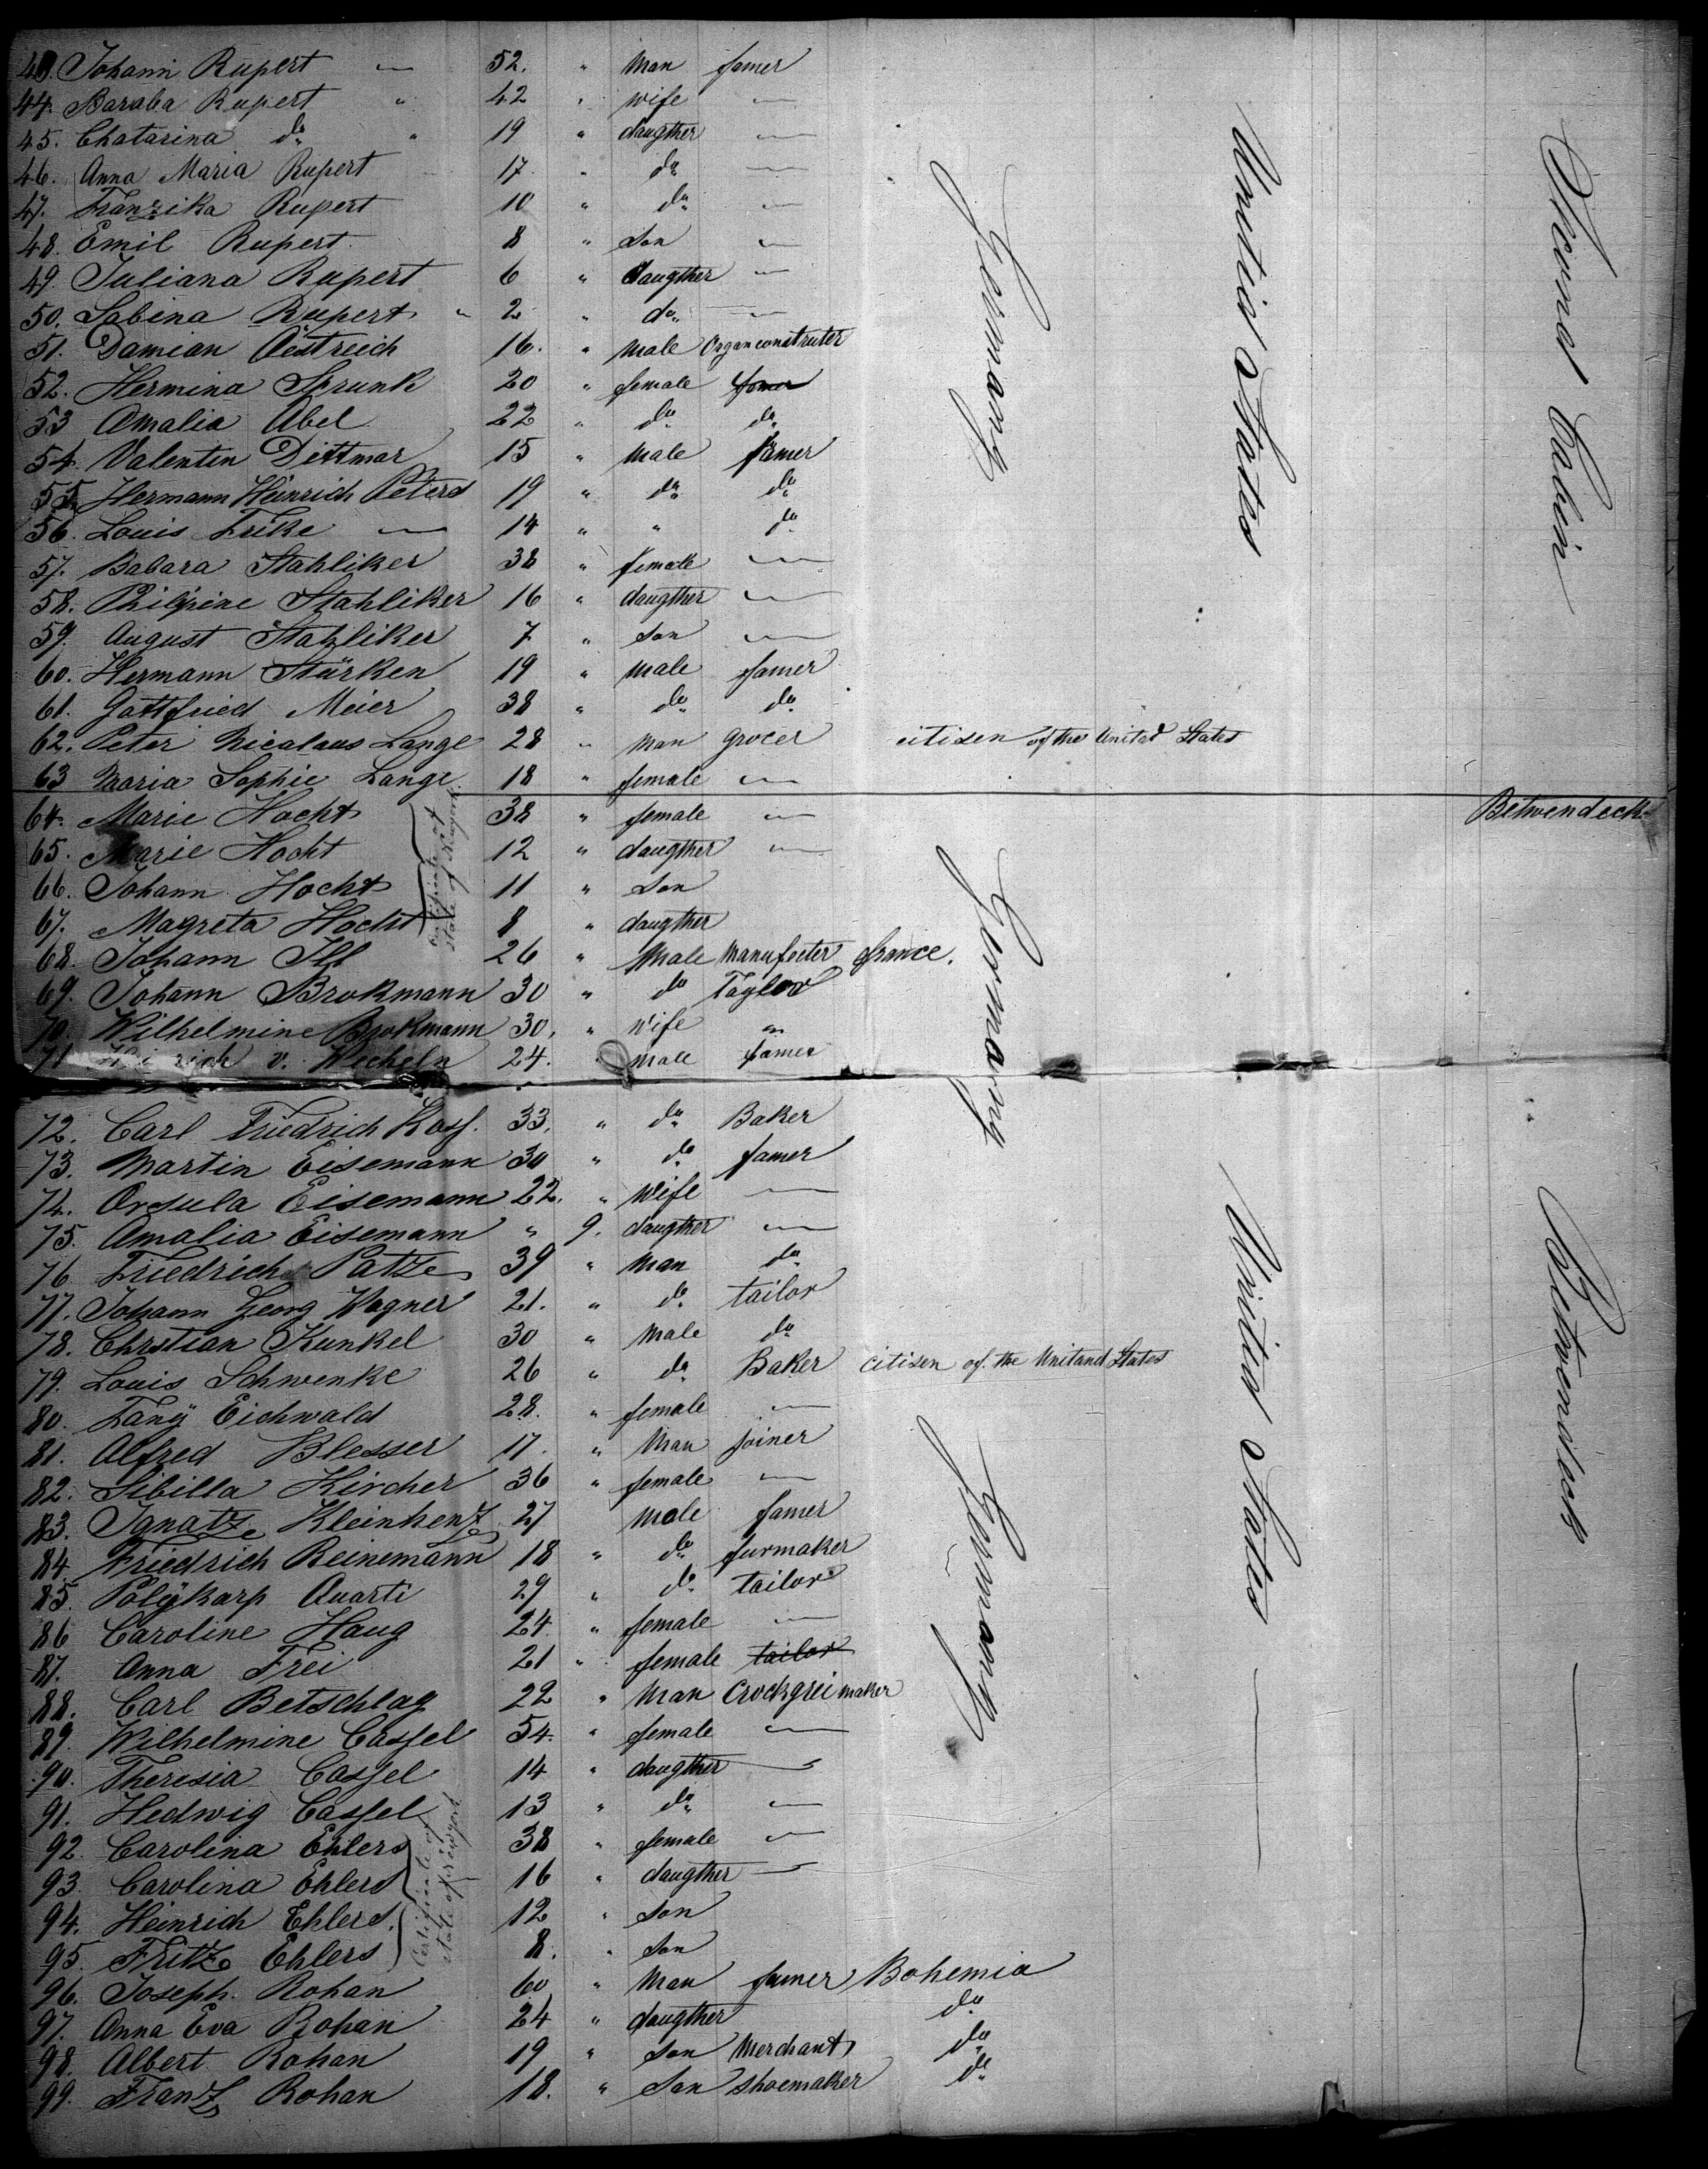 43. Johann Rupert — 52. " Man famer
44. Baraba Rupert " 42 " wife —
45. Chatarina do " 19 " daugther —
46. Anna Maria Rupert 17 " do —
47. Franzika Rupert 10 " do —
48. Emil Rupert 8 " son —
49. Juliana Rupert 6 " daugther —
50. Sabina Rupert " 2 " do —
51. Damian Oestreich 16. " male Organconstruter
52. Hermina Sprunk 20 " female famer
53 Amalia Abel 22 " do do
54. Valentin Dittmar 15 " male famer
55. Hermann Heinrich Peters 19 " do do
56. Louis Frike — 14 " " do
57. Babara Stahliker 38 " female —
58. Philipine Stahliker 16 " daugther —
59. August Stahliker 7 " son —
60. Hermann Stürken 19 " male famer
61. Gottfried Meier 38 " do do
62. Peter Nicolaus Lange 28 " man grocer citisen of the United States
63 Maria Sophie Lange 18 " female —
Germany
United States
Second Cabin
64. Marie Hocht 38 " female — Betwendeck
65. Marie Hocht 12 " daugther —
66. Johann Hocht 11 " son
67. Magreta Hocht 8 " daugther
state of Newyork
68. Johann Ill 26 " Male Manufocter france.
69. Johann Brokmann 30 " do Taylor
70. Wilhelmine Brokmann 30. " wife "
71 v. Wecheln 24. " male famer
72. Carl Friedrich Koss. 33. " do Baker
73. Martin Eisemann 30 " do famer
74. Orsula Eisemann 22. " wife —
75. Amalia Eisemann " 9. daugther —
76. Friedrich Patze 39 " man do
77. Johann Georg Wagner 21. " do tailor
78. Chrstian Kunkel 30 " male do
79. Louis Schwenke 26 " do Baker citisen of the Unitand States
80. Fany Eichwald 28. " female —
81. Alfred Blesser 17. " Man joiner
82. Sibilla Kircher 36 " female —
83. Ignatz Kleinhenz 27 male famer
84. Friedrich Reinemann 18 " do furmaker
85. Polykarp Quarti 29 " do tailor
86 Caroline Haug 24. " female —
87. Anna Frei 21 " female tailor
88. Carl Betschlag 22 " Man Crockgrei maker
89. Wilhelmine Cassel 54. " female —
90. Theresia Cassel 14 " daugther —
91. Hedwig Cassel 13 " do —
92. Carolina Ehlers 38 " female —
93. Carolina Ehlers 16 " daugther —
94. Heinrich Ehlers. 12 " son
95. Fritz Ehlers 8. " son
Certificate of
state of Newyork
96. Joseph Rohan 60 " Man famer Bohemia
97. Anna Eva Rohan 24 " daugther do
98. Albert Rohan 19 " son Merchant do
99. Franz Rohan 18. " Son shoemaker do
Germany
Germany
United States
Betwendeck